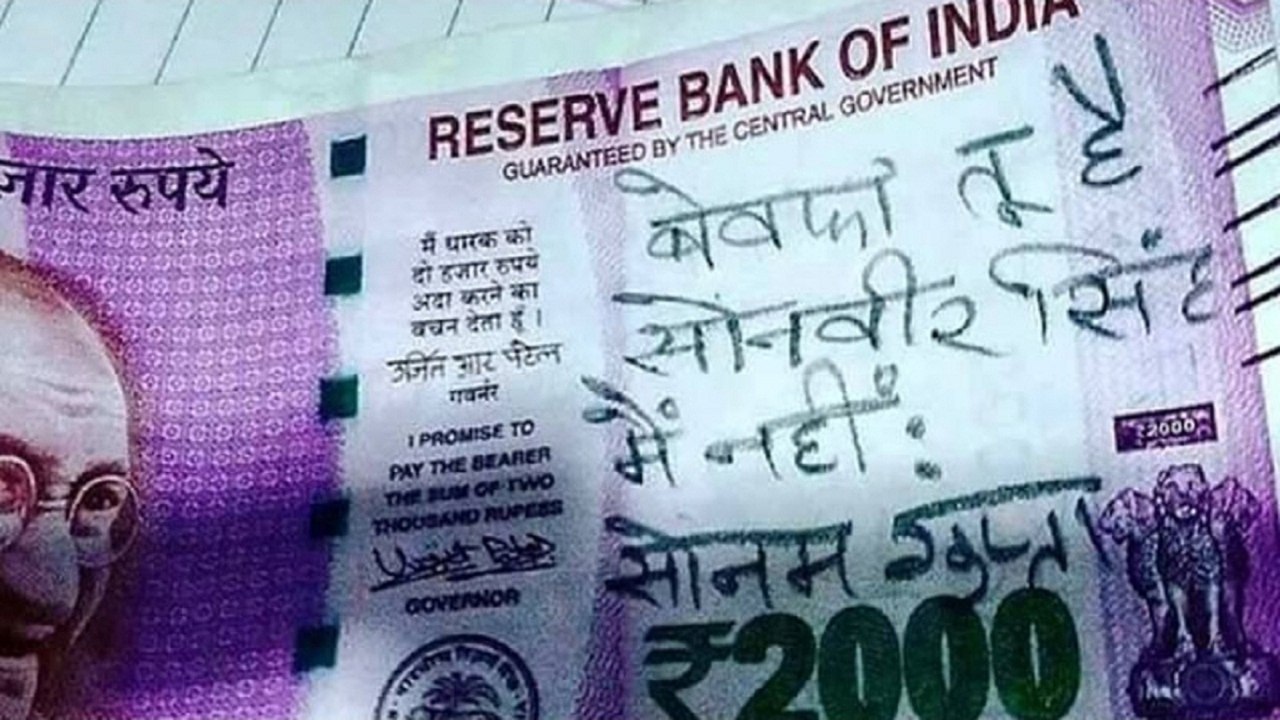 RESERVE BANK OF INDIA
GUARANTEED BY THE CENTRAL GOVERNMENT
जार रुपये
मैं धारक को
दो हज़ार रुपये
अदा करने का
वचन देता हूँ ।
उर्जित आर पटेल
गवर्नर
I PROMISE TO
PAY THE BEARER
THE SUM OF TWO
THOUSAND RUPEES
GOVERNOR
बेवफा तू है
सोनवीर सिंह
मैं नहीं :
सोनम गुप्ता
₹2000
₹2000